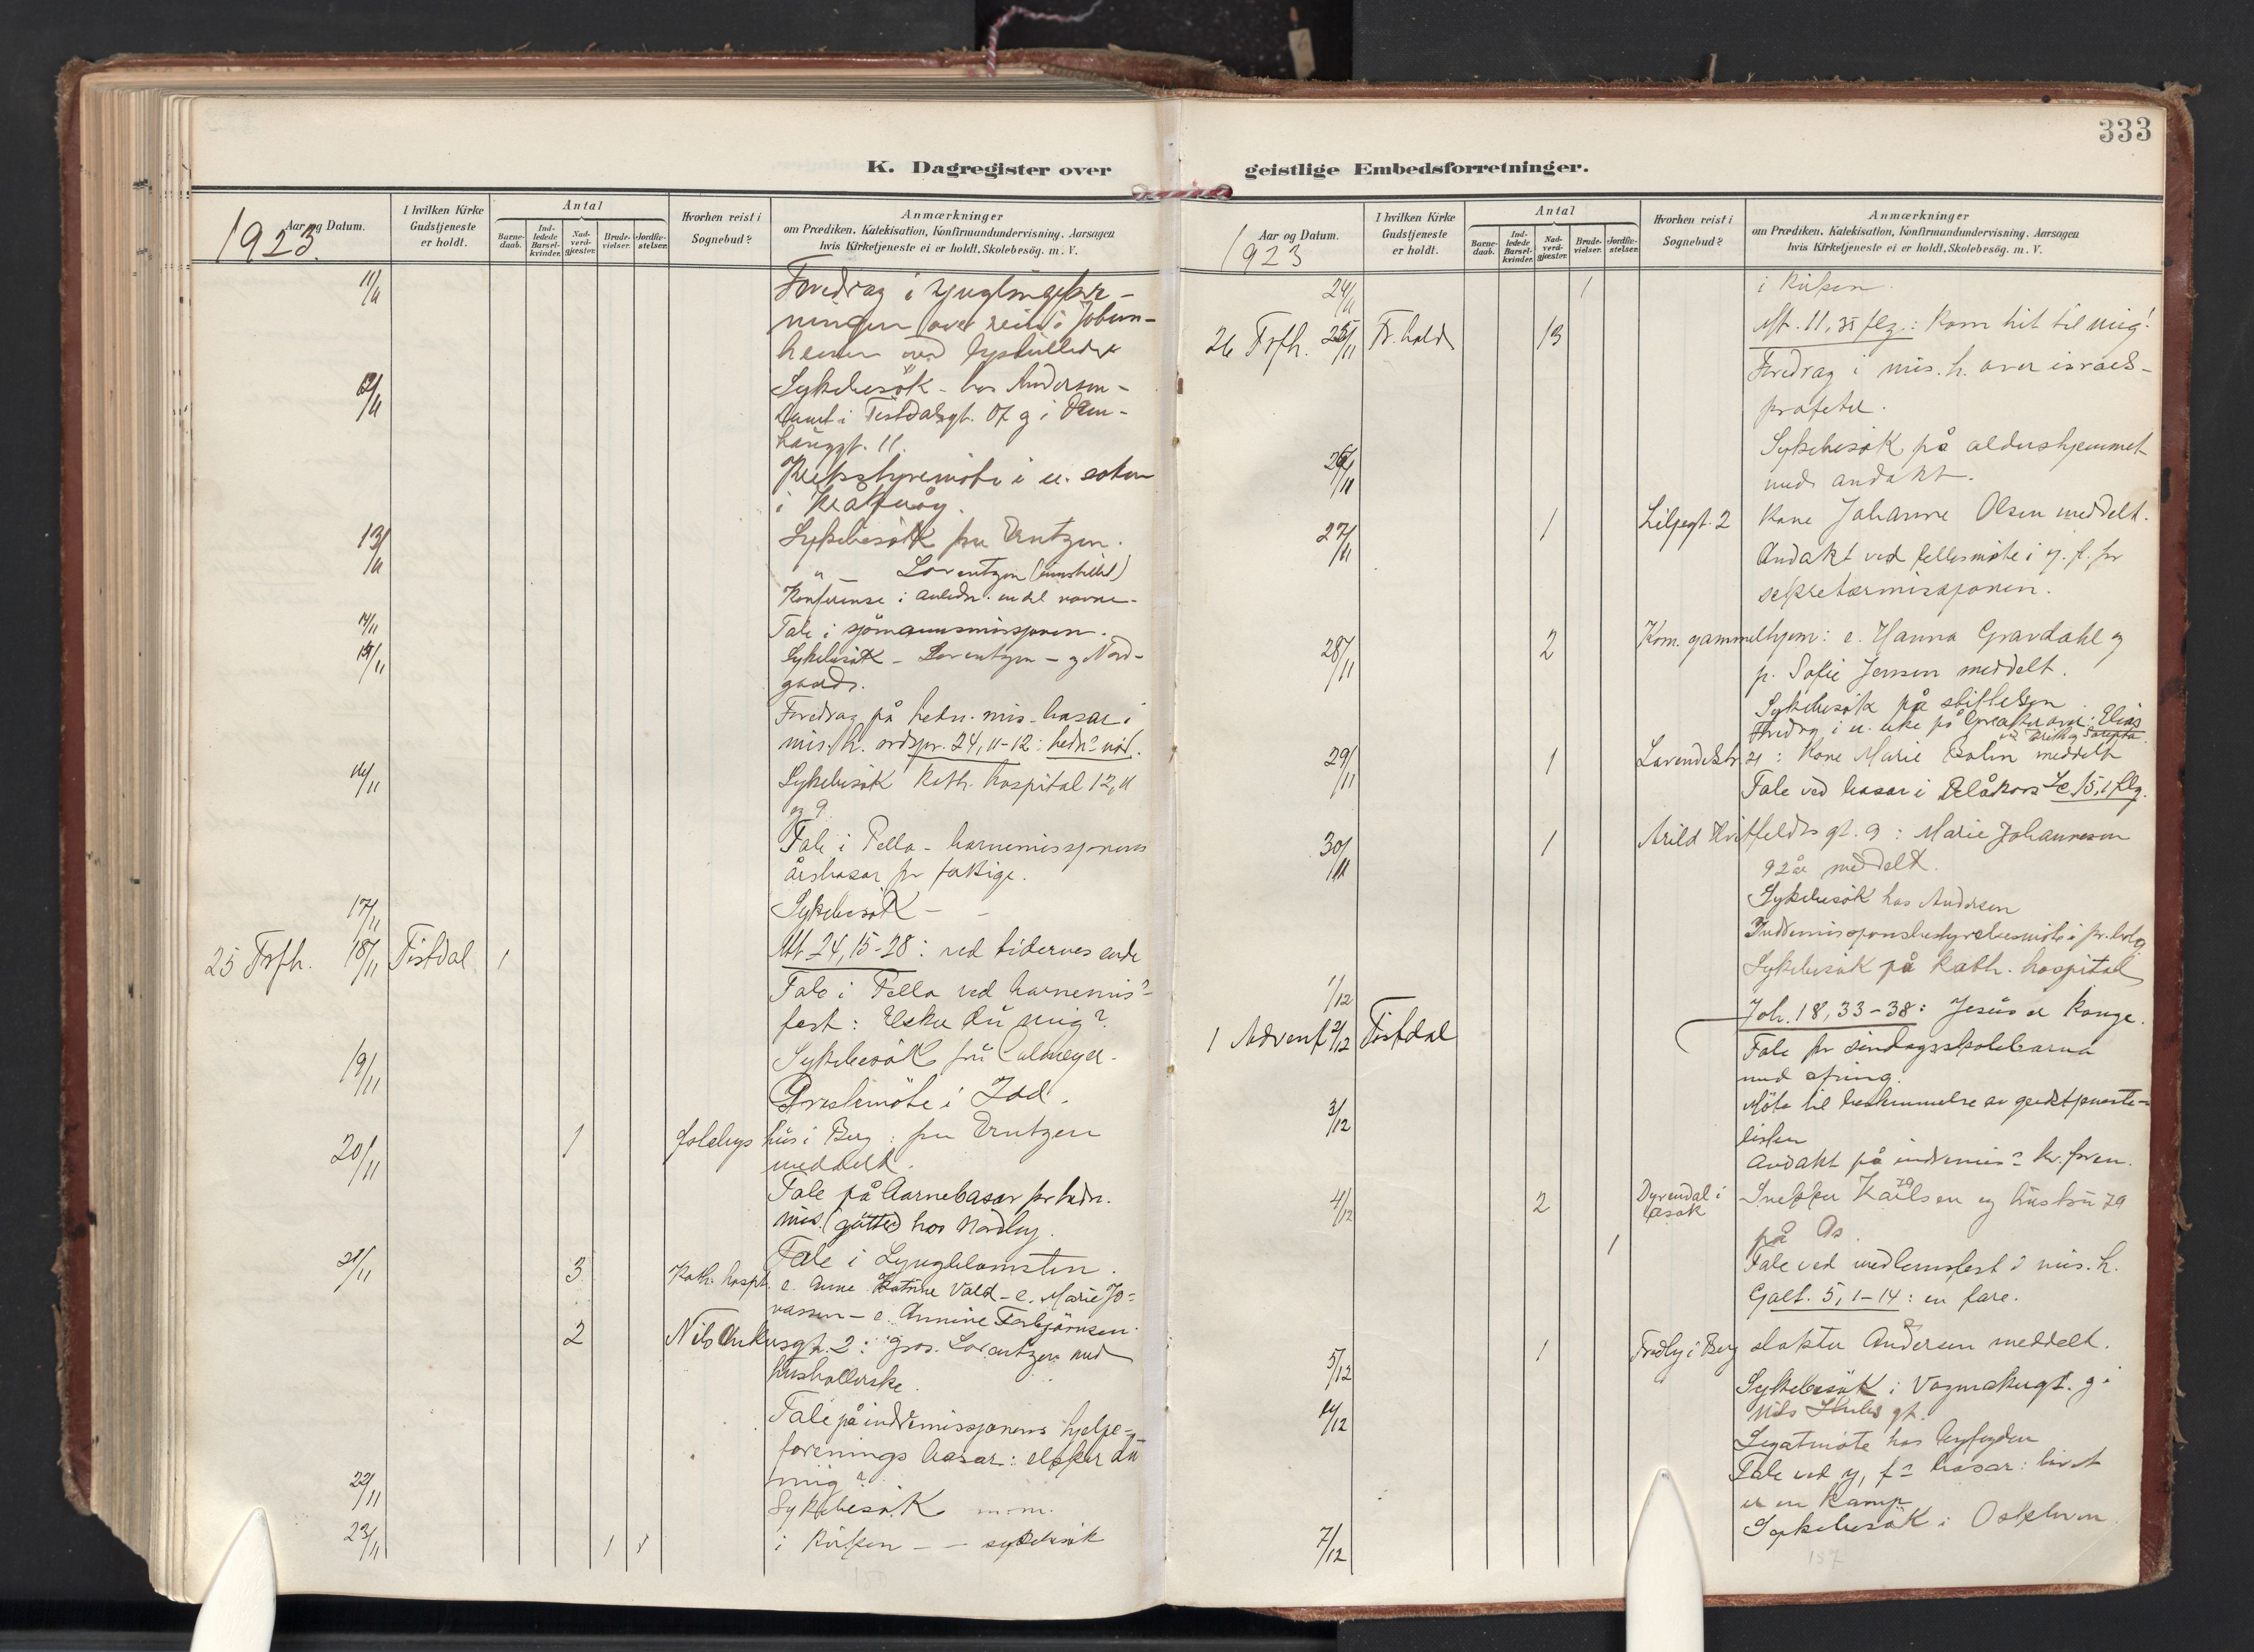 333
K. Dagregister over
geistlige Embedsforretninger.
Aar og Datum.
1923.
I hvilken Kirke Gudstjeneste er holdt.
Antal
Barne-daab.
Ind-ledede Barsel-kvinder.
Nad-verd-gjæster.
Brude-vielser.
Jordfæ-stelser.
Hvorhen reist i Sognebud?
Anmærkninger
om Prædiken, Katekisation, Konfirmandundervisning, Aarsagen
hvis Kirketjeneste ei er holdt, Skolebesög. m. V.
11/11 Foredrag i
over i Jotun-
heimen med lysbilleder
12/11 Sykebesök - hos Andersen -
samt i Tistdalsgt. 07 og i
11.
i
13/11 Sykebesök fru Erntzen.
" - Lorentzen
Konferense i
14/11 Tale i sjömannsmissjonen.
15/11 Sykebesök - Lorentzen - og Nord-
gaard.
Foredrag på hedn. mis. basar i
mis. h. ordspr. 24, 11-12: hedn.s nöd.
16/11 Sykebesök Kath. hospital 12, 11
og 9
Tale i Pella - barnemissjonens
årsbasar for fattige.
17/11 Sykebesök - -
25 Trfh. 18/11 Tistdal 1 Mt. 24, 15-28: ved tidernes ende
Tale i Pella ved barnemis.s
fest: Elsker du mig?
19/11 Sykebesök fru Calmeyer.
Prestemöte i Idd.
20/11 1 hus i Berg: fru Erntzen
meddelt.
Tale på barnebasar for hedn.
mis. (gutter) hos Nordby.
21/11 Tale i Lyngblomsten.
3 Kath. hospt. e. Anne Katrine Vold - e. Marie Jo-
nassen - e. Annine Torbjörnsen.
2 Nils Ankersgt. 2: gros. Lorentzen med
husholderske.
Tale på indremissjonens hjelpe-
forenings basar: elsker du
mig?
22/11 Sykebesök m.m.
23/11 1 1 i kirken - - sykebesök
Aar og Datum.
1923
I hvilken Kirke Gudstjeneste er holdt.
Antal
Barne-daab.
Ind-ledede Barsel-kvinder.
Nad-verd-gjæster.
Brude-vielser.
Jordfæ-stelser.
Hvorhen reist i Sognebud?
Anmærkninger
om Prædiken, Katekisation, Konfirmandundervisning, Aarsagen
hvis Kirketjeneste ei er holdt, Skolebesög. m. V.
24/11 1 i kirken.
26 Trfh. 25/11 Fr.hald 13 Mt. 11, 25 flg.: Kom hit til mig!
Foredrag i mis. h. over israels-
profeter.
26/11 Sykebesök på aldershjemmet
med andakt.
27/11 1 Liljegt. 2 Kone Johanne Olsen meddelt.
Andakt ved fellesmöte i y. f. for
sekretærmissjonen.
28/11 2 Kom. gammelhjem: e. Hanna Gravdahl og
p. Sofie Jensen meddelt.
Sykebesök på stiftelsen
Foredrag i u. uke på over: Elias
Sarepta.
29/11 1 Lavendelstr. 21: Kone Marie Bolin meddelt
Tale ved basar i Blåkors Lc. 15, 1 flg.
30/11 1 Arild Hvitfeldts gt. 9: Marie Johannesen
92 år meddelt.
Sykebesök hos Andersen
Indremissjonsbestyrelsesmöte i pr.bolig
1/12 Sykebesök på Kath. hospital
1 Advent 2/12 Tistdal Joh. 18, 33-38: Jesus er konge.
Tale for söndagsskolebarna
med
3/12 Möte til bestemmelse av gudstjeneste-
listen
Andakt på indremis.s kv.foren.
4/12 2 Dyrendal i Asak Snekker Karlsen 79 og hustru 79
1 på Os
Tale ved medlemsfest i mis. h.
Galt. 5, 1-14: en fare.
5/12 1 Fredly i Berg slakter Andersen meddelt.
Sykebesök i Vognmakergt. og i
Nils gt.
6/12 Legatmöte hos byfogden
Tale ved y, f.s basar: livet
er en kamp
7/12 Sykebesök i
157